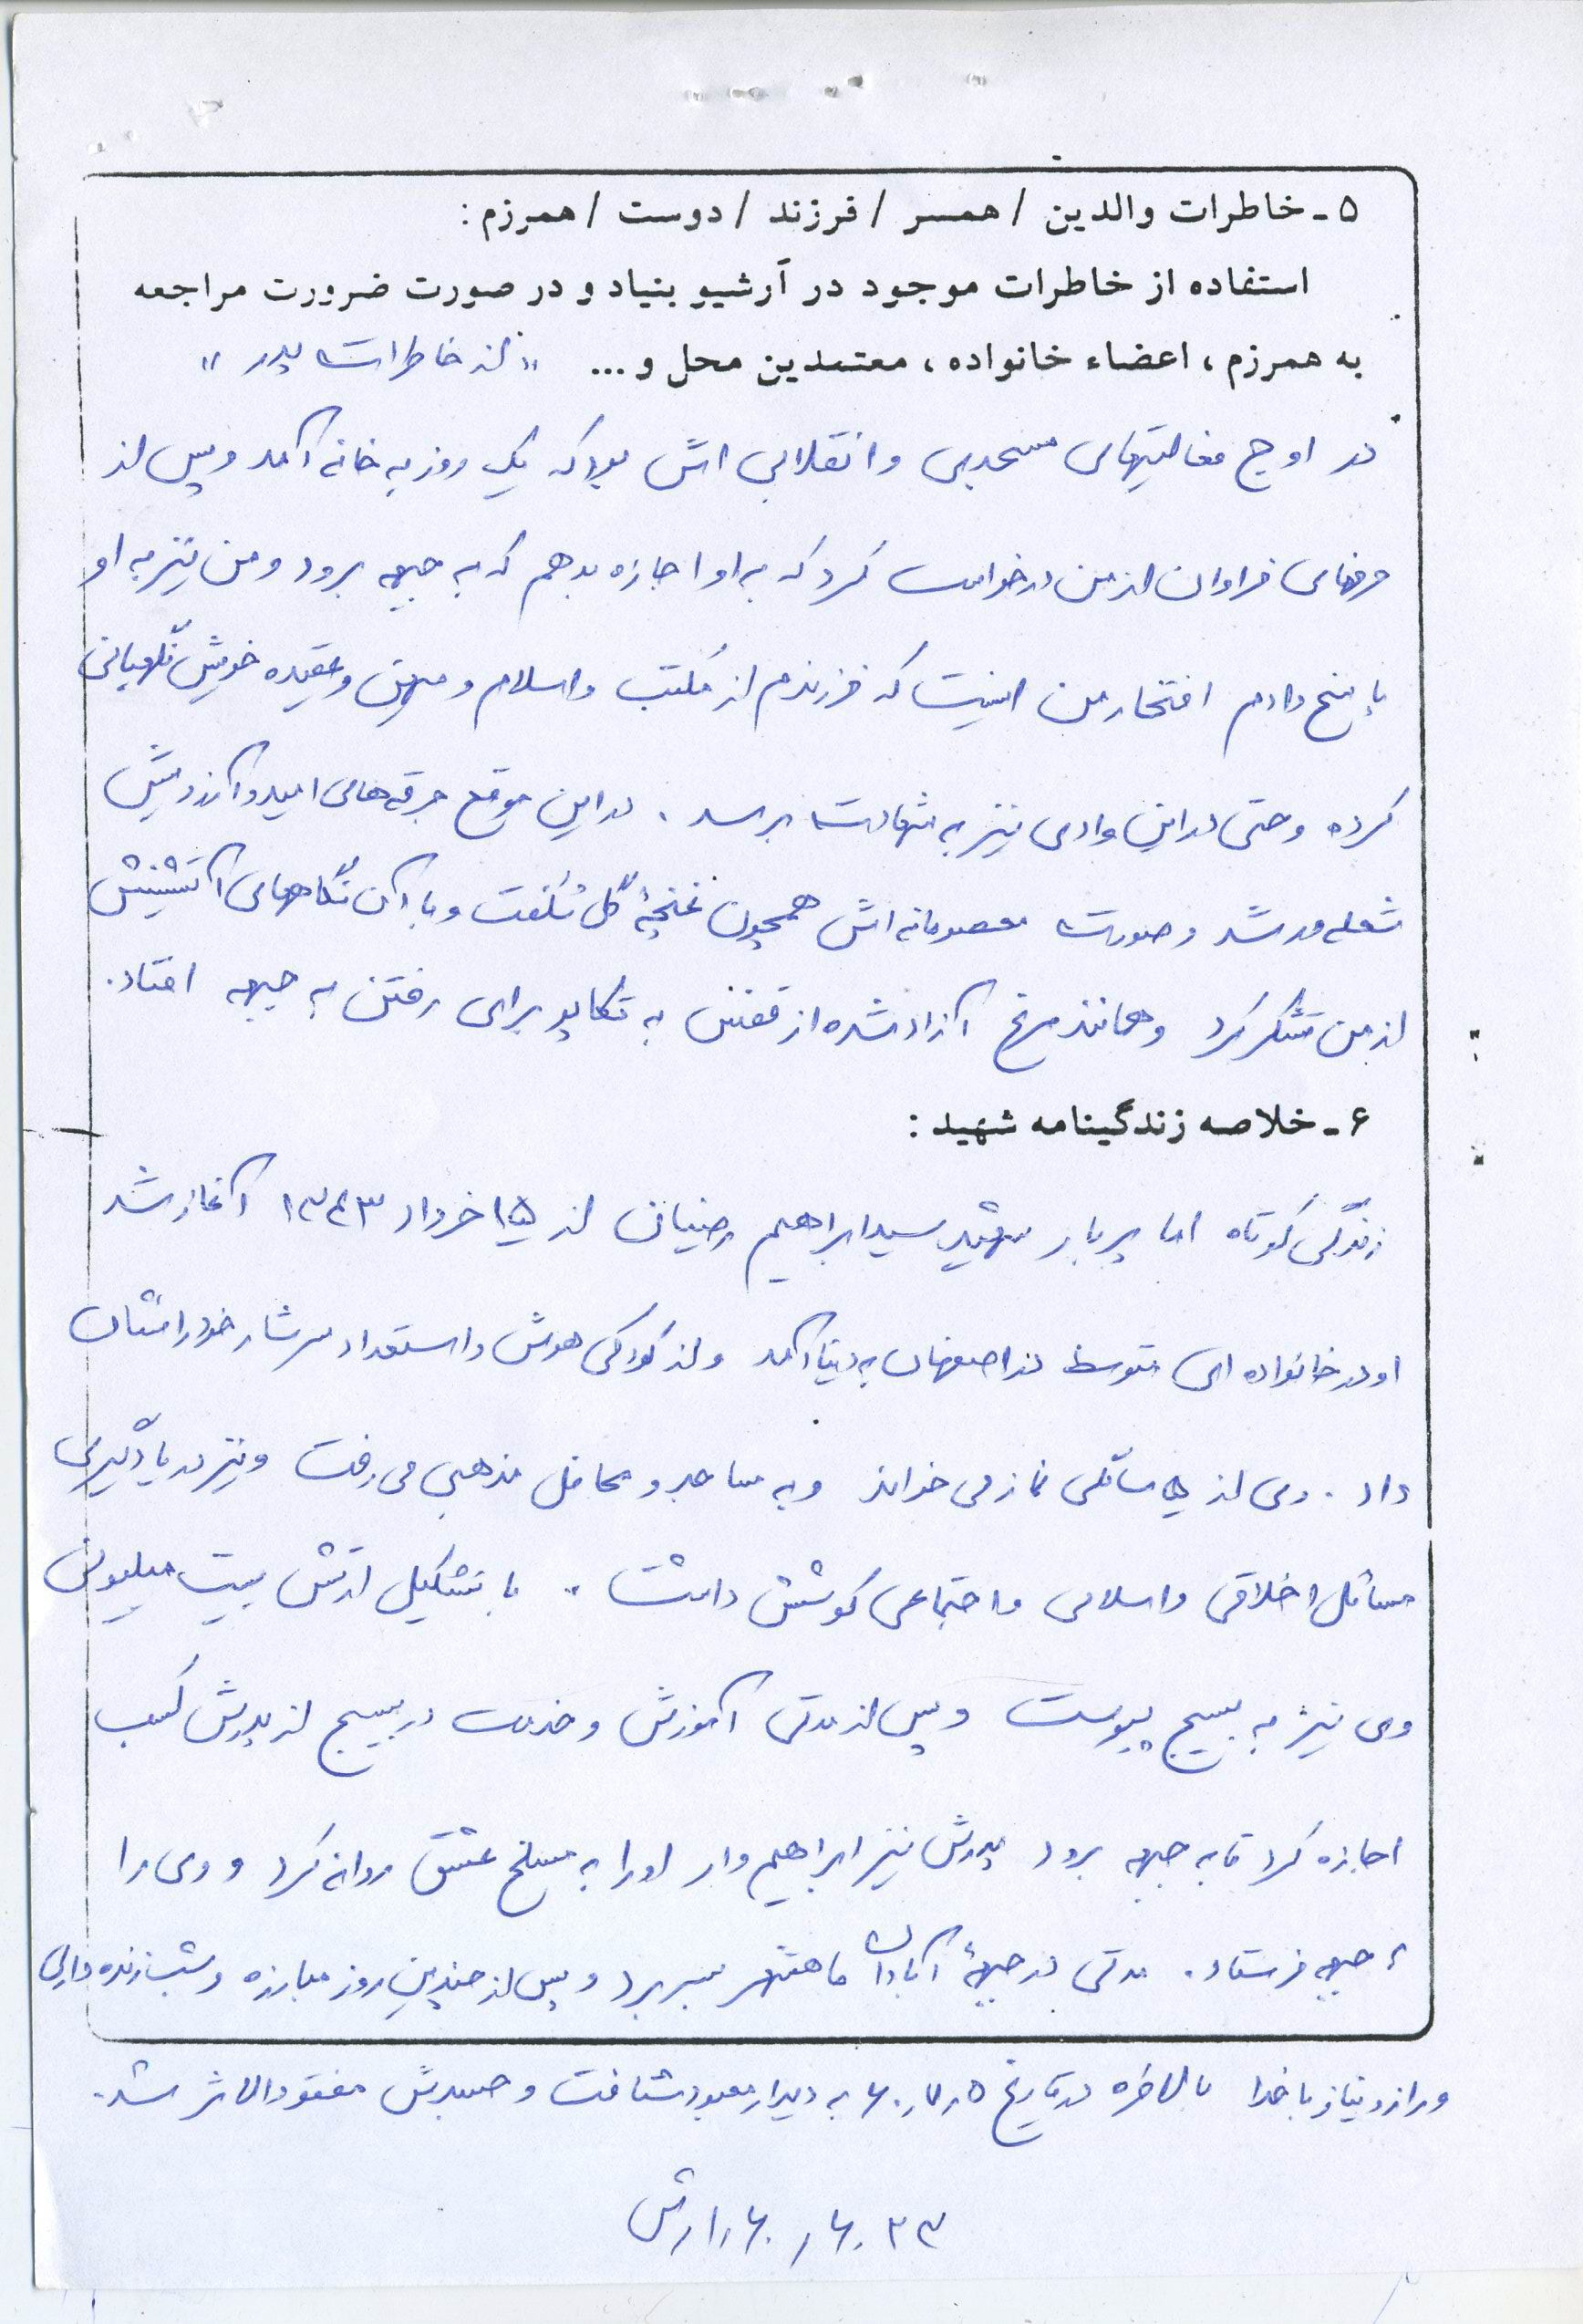 ۵ - خاطرات والدین / همسر / فرزند / دوست / همرزم :
استفاده از خاطرات موجود در آرشیو بنیاد و در صورت ضرورت مراجعه
به همرزم ، اعضاء خانواده ، معتمدین محل و ... « از خاطرات پدر »
در اوج فعالیتهای مسجدی و انقلابی اش بود که یک روز به خانه آمد و پس از
حرفهای فراوان از من درخواست کرد که به او اجازه بدهم که به جبهه برود و من نیز به او
پاسخ دادم افتخار من اینست که فرزندم از مکتب و اسلام و میهن و عقیده خویش نگهبانی
کرده و حتی در این وادی نیز به شهادت برسد . در این موقع جرقه های امید و آرزویش
شعله ور شد و صورت معصومانه اش همچون غنچهٔ گل شکفت و با آن نگاههای آتشینش
از من تشکر کرد و همانند مرغ آزاد شده از قفس به تکاپو برای رفتن به جبهه افتاد .
۶ - خلاصه زندگینامه شهید :
زندگی کوتاه اما پربار شهید سید ابراهیم رضیان از ۱۵ خرداد ۱۳۴۳ آغاز شد
او در خانواده ای متوسط در اصفهان به دنیا آمد و از کودکی هوش و استعداد سرشار خود را نشان
داد . وی از ۵ سالگی نماز می خواند و به مساجد و محافل مذهبی می رفت و نیز در یادگیری
مسائل اخلاقی و اسلامی و اجتماعی کوشش داشت . با تشکیل ارتش بیست میلیونی
وی نیز به بسیج پیوست و پس از مدتی آموزش و خدمت در بسیج از پدرش کسب
اجازه کرد تا به جبهه برود پدرش نیز ابراهیم وار او را به مسلخ عشق روانه کرد و وی را
به جبهه فرستاد . مدتی در جبههٔ آبادان ماهشهر بسر برد و پس از چندین روز مبارزه و شب زنده داری
و راز و نیاز با خدا بالاخره در تاریخ ۶۰٫۷٫۵ به دیدار معبود شتافت و جسدش مفقودالاثر شد .